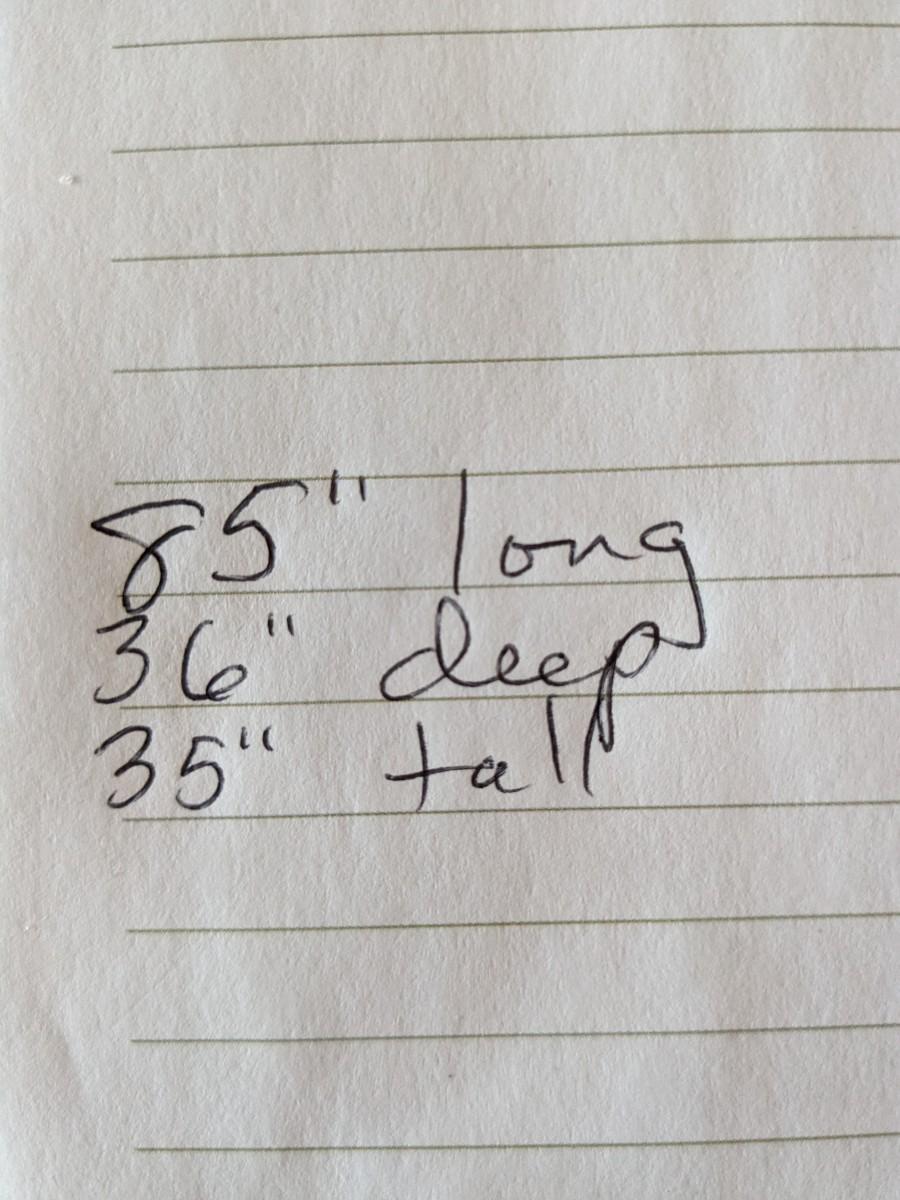 85" long
36" deep
35" tall